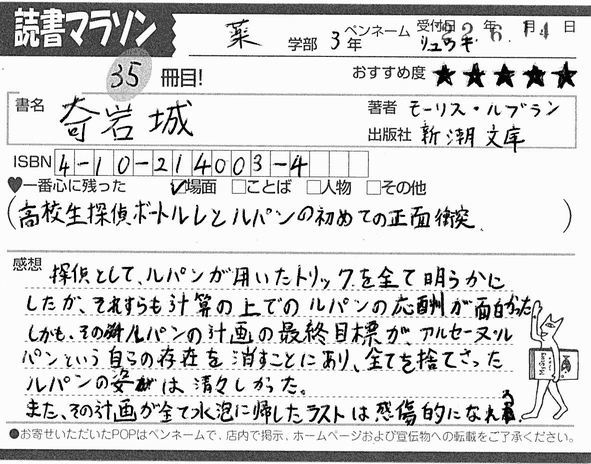 読書マラソン
薬 学部 3年 ペンネーム リュウキ 受付日 年 6. 14 日
35 冊目! おすすめ度 ★★★★★
書名 奇岩城 著者 モーリス・ルブラン
出版社 新潮文庫
ISBN 4-10-214003-4
♥一番心に残った ☑場面 □ことば □人物 □その他
(高校生探偵ボートルレとルパンの初めての正面衝突. )
感想
探偵として、ルパンが用いたトリックを全て明らかに
したが、それすらも計算の上でのルパンの応酬が面白かった
しかも、その ルパンの計画の最終目標が、アルセーヌ・ル
パンという自らの存在を消すことにあり、全てを捨てさった
ルパンの姿 は、清々しかった。
また、その計画が全て水泡に帰したラストは感傷的になれる。
●お寄せいただいたPOPはペンネームで、店内で掲示、ホームページおよび宣伝物への転載をご了承ください。